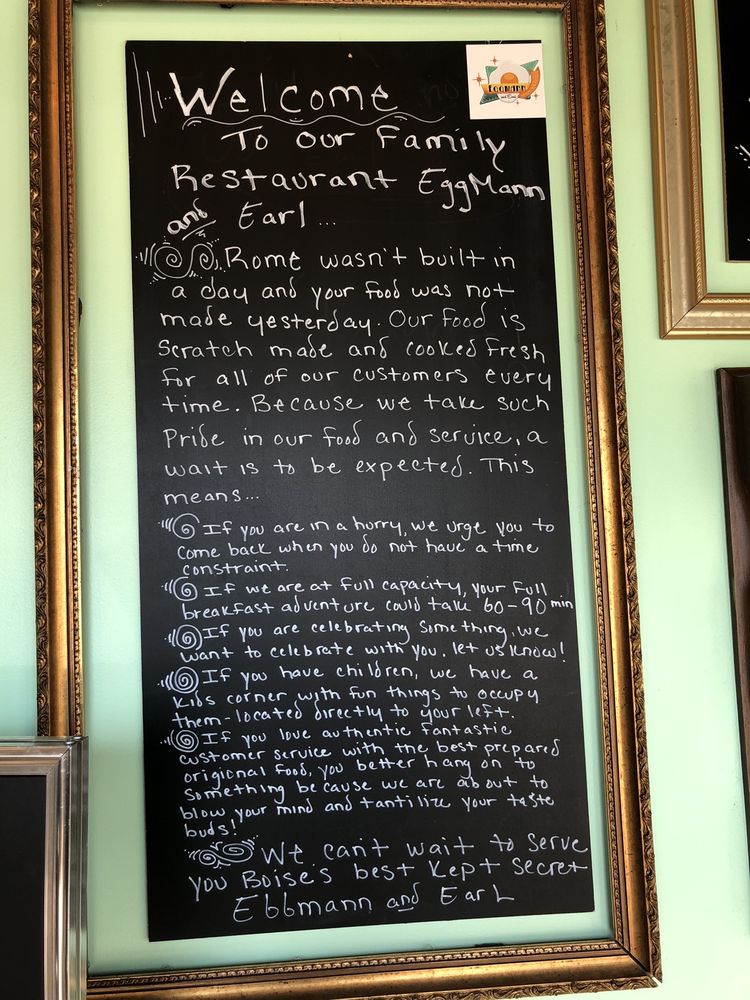 Welcome
EGGMANN
and Earl
To Our Family
Restaurant EggMann
and Earl...
Rome wasn't built in
a day and your food was not
made yesterday. Our food is
Scratch made and cooked fresh
for all of our customers every
time. Because we take such
Pride in our food and service, a
wait is to be expected. This
means...
If you are in a hurry, we urge you to
come back when you do not have a time
constraint.
If we are at full capacity, your full
breakfast adventure could take 60-90 min
If you are celebrating something, we
want to celebrate with you, let us know!
If you have children, we have a
kids corner with fun things to occupy
them - located directly to your left.
If you love authentic fantastic
customer service with the best prepared
origional food, you better hang on to
something because we are about to
blow your mind and tantilize your taste
buds!
We can't wait to serve
you Boise's best kept secret
Ebbmann and Earl